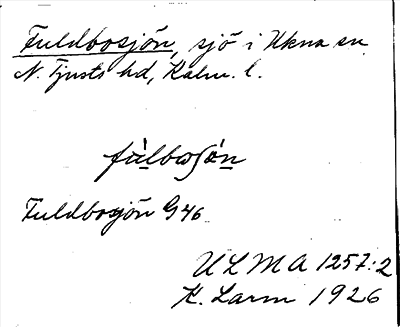 Fuldbosjön, sjö i Ukna sn
N. Tjusts hd, Kalm. l.
fùlboʃö́n
Fuldbosjön G46
ULMA 1257:2
K. Larm 1926